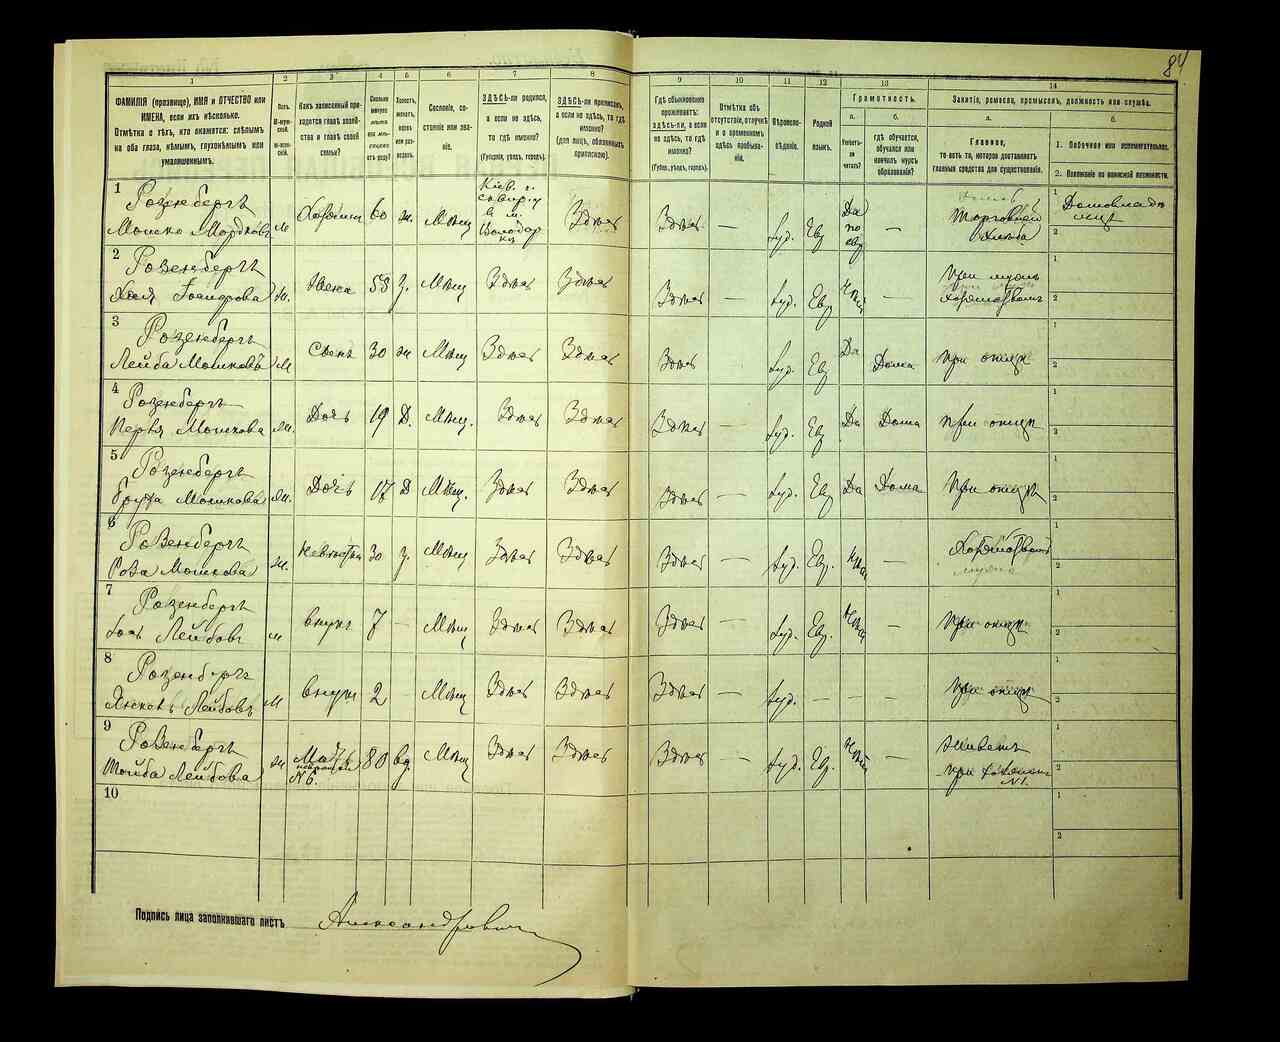 84
1 2 3 4 5 6 7 8 9 10 11 12 13 14
ФАМИЛІЯ (прозвище), ИМЯ и ОТЧЕСТВО или
ИМЕНА, если ихъ нѣсколько.
Отмѣтка о тѣхъ, кто окажется: слѣпымъ
на оба глаза, нѣмымъ, глухонѣмымъ или
умалишеннымъ.
Полъ.
М-мужской.
Ж-женскій.
Какъ записанный приходится главѣ хозяйства и главѣ своей
семьи?
Сколько
минуло
лѣтъ
или мѣсяцевъ
отъ роду?
Холостъ,
женатъ,
вдовъ
или разведенъ.
Сословіе, состояніе или званіе.
ЗДѢСЬ-ли родился,
а если не здѣсь,
то гдѣ именно?
(Губернія, уѣздъ, городъ).
ЗДѢСЬ-ли приписанъ,
а если не здѣсь, то гдѣ
именно?
(для лицъ, обязанныхъ
припискою).
Гдѣ обыкновенно
проживаетъ:
здѣсь-ли, а если
не здѣсь, то гдѣ
именно?
(Губер., уѣздъ, городъ).
Отмѣтка объ
отсутствіи, отлучкѣ
и о временномъ
здѣсь пребываніи.
Вѣроисповѣданіе.
Родной
языкъ.
Грамотность.
а.
Умѣетъ-ли
читать?
б.
гдѣ обучается,
обучался или
кончилъ курсъ
образованія?
Занятіе, ремесло, промыселъ, должность или служба.
а.
Главное,
то-есть то, которое доставляетъ
главныя средства для существованія.
б.
1. Побочное или вспомогательное.
2. Положеніе по воинской повинности.
1 Розенбергъ
Мошко Мордковъ м Хозяинъ 60 ж. Мѣщ Кіев. г. сквир. у в м. Володарки Здѣсь Здѣсь — Іуд. Евр Да по евр — Торговля хлѣба 1 Домовладѣлецъ 2
2 Розенбергъ
Хая ж. Жена 53 з. Мѣщ Здѣсь Здѣсь Здѣсь — Іуд. Евр — При мужѣ 1 2
3 Розенбергъ
Лейба Мошковъ м Сынъ 30 ж Мѣщ Здѣсь Здѣсь Здѣсь Іуд. Евр Да Дома При отцѣ 1 2
4 Розенбергъ
Перля Мошкова ж. Дочь 19 Д. Мѣщ. Здѣсь Здѣсь Здѣсь — Іуд. Евр Да Дома При отцѣ 1 2
5 Розенбергъ
Мошкова ж. Дочь 17 Д Мѣщ. Здѣсь Здѣсь Здѣсь — Іуд. Евр Да Дома При отцѣ 1 2
6 Розенбергъ
Роза Мошкова ж. Невѣстка 30 з. Мѣщ Здѣсь Здѣсь Здѣсь — Іуд. Евр. — 1 2
7 Розенбергъ
Лейбовъ м внукъ 7 — Мѣщ Здѣсь Здѣсь Здѣсь Іуд. Евр. — При отцѣ 1 2
8 Розенбергъ
Лейбовъ м внукъ 2 — Мѣщ Здѣсь Здѣсь Здѣсь — Іуд. — — — При отцѣ 1 2
9 Розенбергъ
Лейбова ж Мать N 6. 80 вд. Мѣщ Здѣсь Здѣсь Здѣсь — Іуд. Евр. — Живетъ при N 1. 1 2
10 1 2
Подпись лица заполнившаго листъ Александровичъ